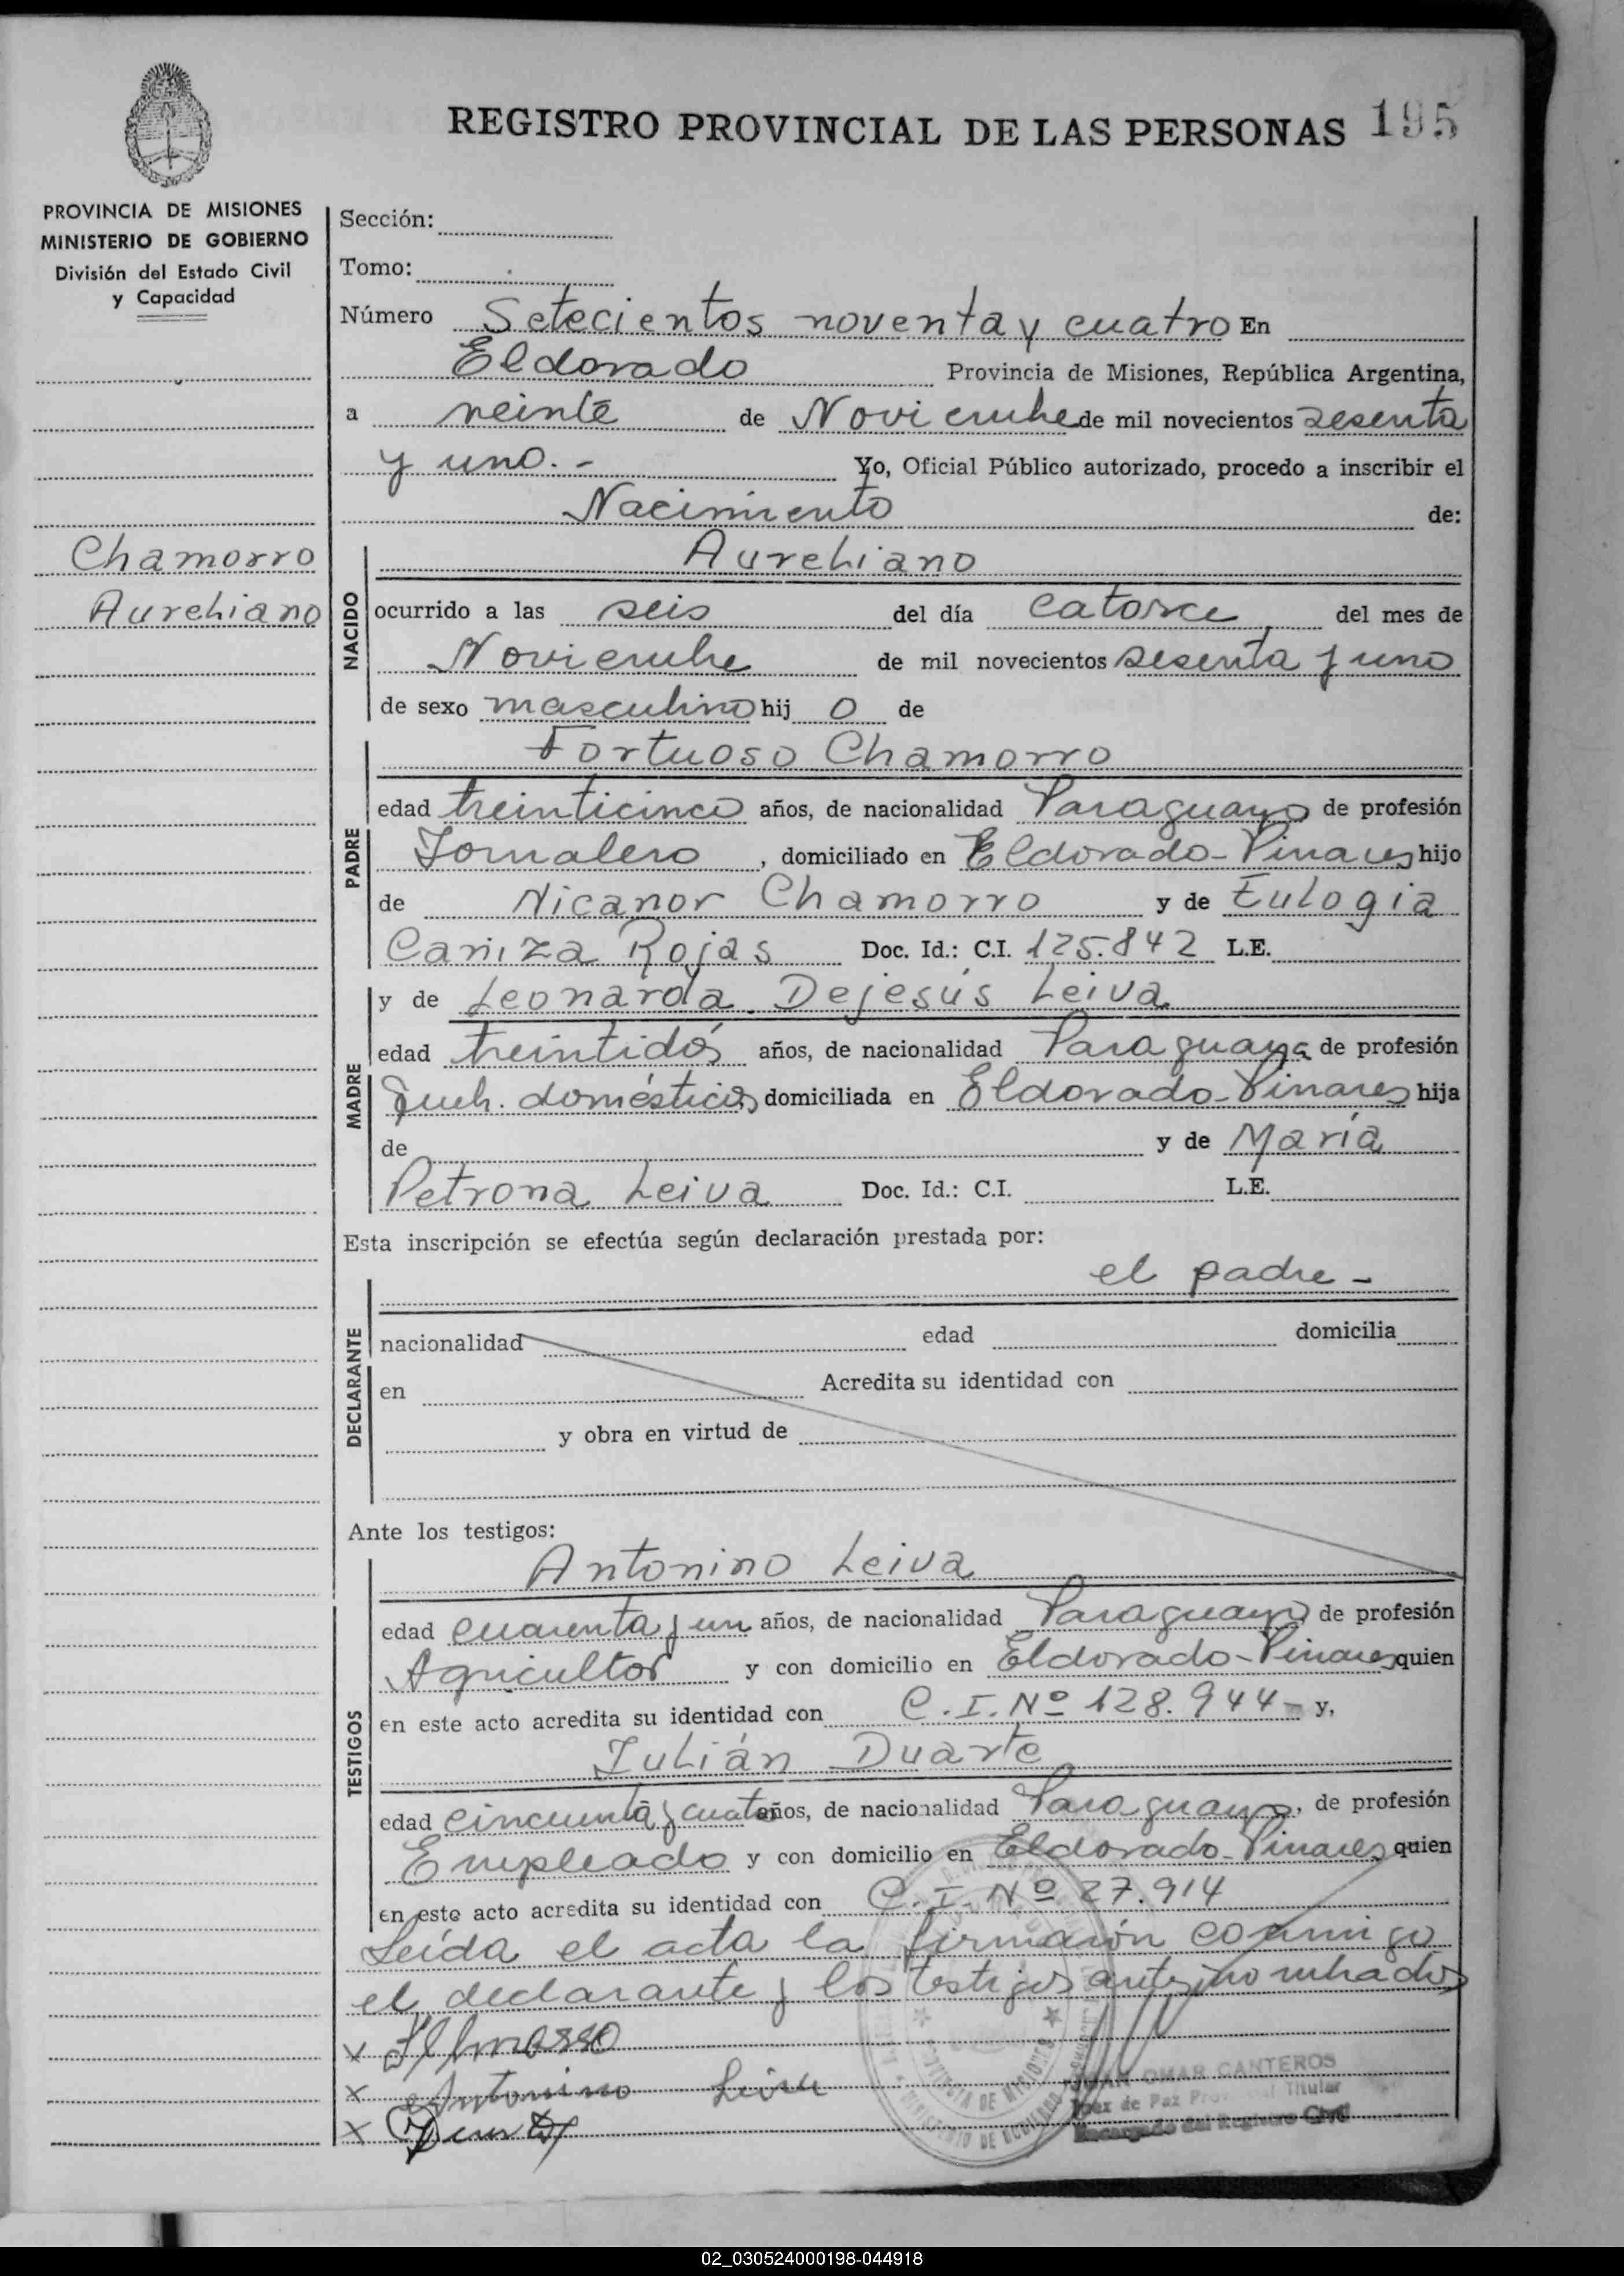 REGISTRO PROVINCIAL DE LAS PERSONAS 195
PROVINCIA DE MISIONES
MINISTERIO DE GOBIERNO
División del Estado Civil
y Capacidad
Chamorro
Aureliano
Sección:
Tomo:
Número Setecientos noventa y cuatro En
Eldorado Provincia de Misiones, República Argentina,
a veinte de Noviembre de mil novecientos sesenta
y uno.- Yo, Oficial Público autorizado, procedo a inscribir el
Nacimiento de:
NACIDO
Aureliano
ocurrido a las seis del día catorce del mes de
Noviembre de mil novecientos sesenta y uno
de sexo masculino hij o de
PADRE
Fortuoso Chamorro
edad treinticinco años, de nacionalidad Paraguayo de profesión
Jornalero, domiciliado en Eldorado-Pinares hijo
de Nicanor Chamorro y de Eulogia
Cañiza Rojas Doc. Id.: C.I. 125.842 L.E.
MADRE
y de Leonarda Dejesús Leiva
edad treintidós años, de nacionalidad Paraguaya de profesión
domésticos domiciliada en Eldorado-Pinares hija
de y de María
Petrona Leiva Doc. Id.: C.I. L.E.
Esta inscripción se efectúa según declaración prestada por:
el padre-
DECLARANTE
nacionalidad edad domicilia
en Acredita su identidad con
y obra en virtud de
Ante los testigos:
TESTIGOS
Antonino Leiva
edad cuarenta y un años, de nacionalidad Paraguayo de profesión
Agricultor y con domicilio en Eldorado-Pinares quien
en este acto acredita su identidad con C.I. Nº 128.944- y,
Julián Duarte
edad cincuenta y cuatro años, de nacionalidad Paraguayo, de profesión
Empleado y con domicilio en Eldorado-Pinares quien
en este acto acredita su identidad con C.I. Nº 27.914
Leída el acta la firmarón conmigo
el declarante y los testigos antes nombrados
x
x Antonino Leiva
x
JUAN OMAR CANTEROS
Juez de Paz Provincial Titular
Encargado del Registro Civil
02_030524000198-044918